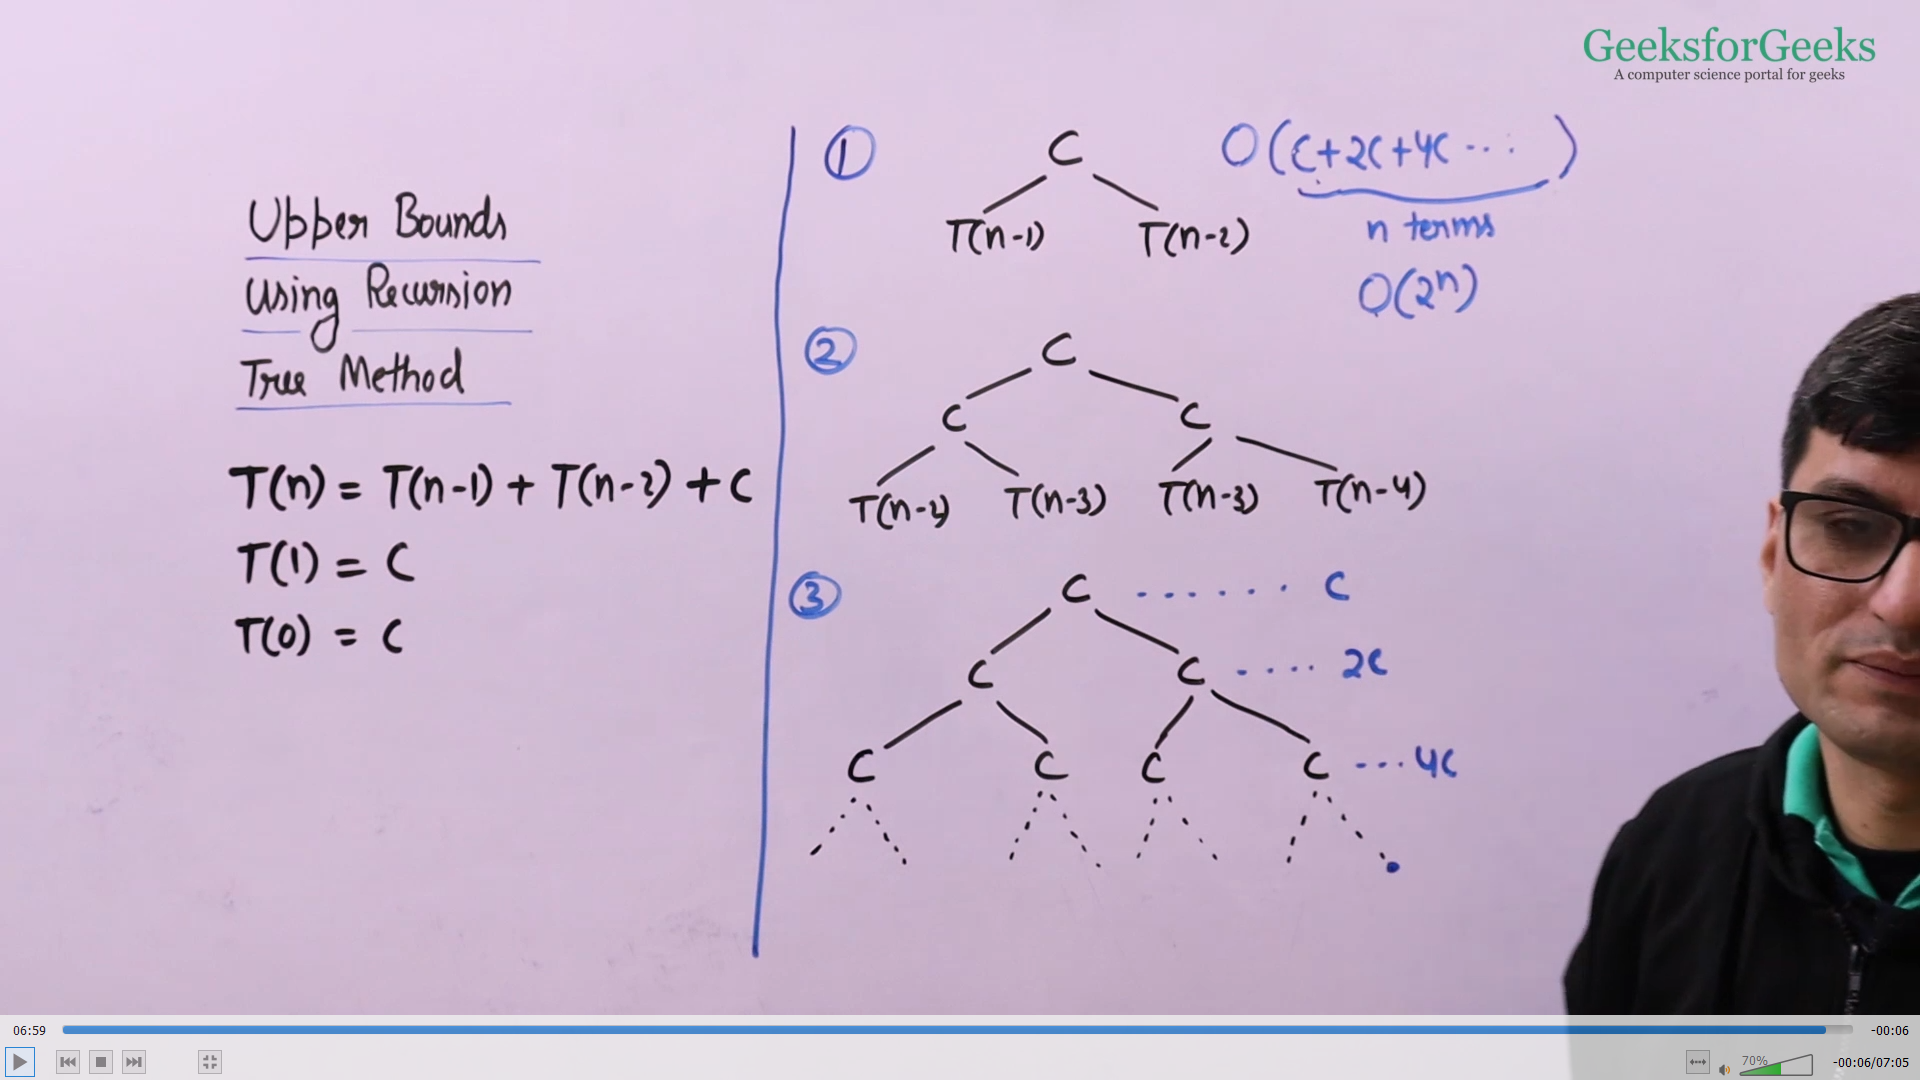 GeeksforGeeks
A computer science portal for geeks
Upper Bounds
Using Recursion
Tree Method
T(n) = T(n-1) + T(n-2) + C
T(1) = C
T(0) = C
①
C
T(n-1) T(n-2)
O(C+2C+4C ··· )
n terms
O(2ⁿ)
②
C
C C
T(n-2) T(n-3) T(n-3) T(n-4)
③
C ······ C
C C ···· 2C
C C C C ··· 4C
06:59
-00:06
70%
-00:06/07:05